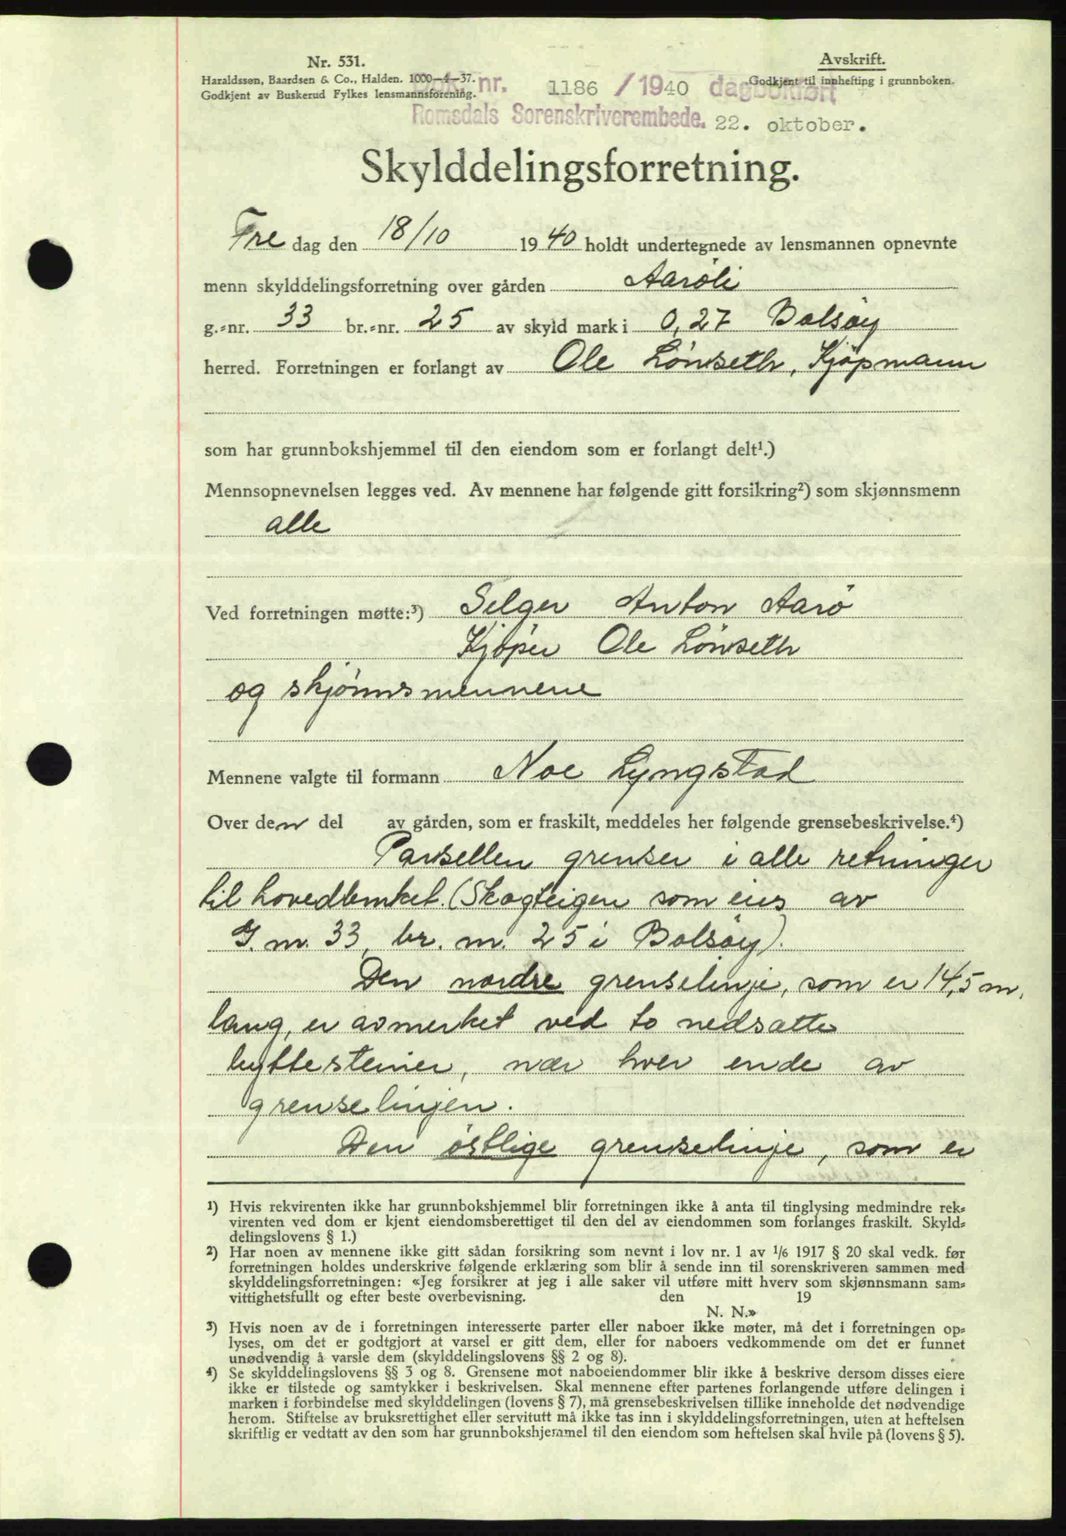 Nr. 531.
Haraldssen, Baardsen & Co., Halden. 1000—4—37.
Godkjent av Buskerud Fylkes lensmannsforening.
Avskrift.
Godkjent til innhefting i grunnboken.
nr. 1186 /1940 dagbokført
Romsdals Sorenskriverembede. 22. oktober.
Skylddelingsforretning.
Fre dag den 18/10 1940 holdt undertegnede av lensmannen opnevnte
menn skylddelingsforretning over gården Aarøli
g.-nr. 33 br.-nr. 25 av skyld mark i 0,27 Bolsøy
herred. Forretningen er forlangt av Ole Lønseth, Kjøpmann
som har grunnbokshjemmel til den eiendom som er forlangt delt¹.)
Mennsopnevnelsen legges ved. Av mennene har følgende gitt forsikring²) som skjønnsmenn
alle
Ved forretningen møtte:³) Selger Anton Aarø
Kjøper Ole Lønseth
og skjønnsmennene
Mennene valgte til formann Noe Lyngstad
Over den del av gården, som er fraskilt, meddeles her følgende grensebeskrivelse.⁴)
Parsellen grenser i alle retninger
til hovedbruket. (Skogteigen som eies av
G. nr. 33, br. nr. 25 i Bolsøy).
Den nordre grenselinje, som er 14,5 m.
lang, er avmerket ved to nedsatte
byttesteiner, nær hver ende av
grenselinjen.
Den østlige grenselinje, som er
¹) Hvis rekvirenten ikke har grunnbokshjemmel blir forretningen ikke å anta til tinglysing medmindre rek-
virenten ved dom er kjent eiendomsberettiget til den del av eiendommen som forlanges fraskilt. Skyld-
delingslovens § 1.)
²) Har noen av mennene ikke gitt sådan forsikring som nevnt i lov nr. 1 av 1/6 1917 § 20 skal vedk. før
forretningen holdes underskrive følgende erklæring som blir å sende inn til sorenskriveren sammen med
skylddelingsforretningen: «Jeg forsikrer at jeg i alle saker vil utføre mitt hverv som skjønnsmann sam-
vittighetsfullt og efter beste overbevisning. den 19
N. N.»
³) Hvis noen av de i forretningen interesserte parter eller naboer ikke møter, må det i forretningen op-
lyses, om det er godtgjort at varsel er gitt dem, eller for naboers vedkommende om det er funnet
unødvendig å varsle dem (skylddelingslovens §§ 2 og 8).
⁴) Se skylddelingslovens §§ 3 og 8. Grensene mot naboeiendommer blir ikke å beskrive dersom disses eiere
ikke er tilstede og samtykker i beskrivelsen. Skal mennene efter partenes forlangende utføre delingen i
marken i forbindelse med skylddelingen (lovens § 7), må grensebeskrivelsen tillike inneholde det nødvendige
herom. Stiftelse av bruksrettighet eller servitutt må ikke tas inn i skylddelingsforretningen, uten at heftelsen
skriftlig er vedtatt av den som har grunnbokshjemmel til den eiendom som heftelsen skal hvile på (lovens § 5).